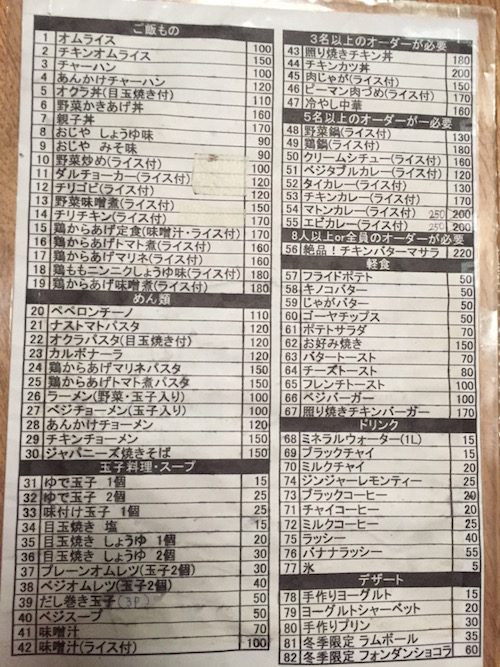 ご飯もの
1 オムライス 100
2 チキンオムライス 150
3 チャーハン 100
4 あんかけチャーハン 150
5 オクラ丼(目玉焼き付) 110
6 野菜かきあげ丼 160
7 親子丼 170
8 おじや しょうゆ味 90
9 おじや みそ味 90
10 野菜炒め(ライス付) 100
11 ダルチョーカー(ライス付) 120
12 チリゴビ(ライス付) 120
13 野菜味噌煮(ライス付) 150
14 チリチキン(ライス付) 170
15 鶏からあげ定食(味噌汁・ライス付) 170
16 鶏からあげトマト煮(ライス付) 160
17 鶏からあげマリネ(ライス付) 160
18 鶏ももニンニクしょうゆ味(ライス付) 180
19 鶏からあげ味噌煮(ライス付) 180
めん類
20 ペペロンチーノ 110
21 ナストマトパスタ 120
22 オクラパスタ(目玉焼き付) 120
23 カルボナーラ 120
24 鶏からあげマリネパスタ 150
25 鶏からあげトマト煮パスタ 150
26 ラーメン(野菜・玉子入り) 100
27 ベジチョーメン(玉子入り) 100
28 あんかけチョーメン 120
29 チキンチョーメン 150
30 ジャパニーズ焼きそば 150
玉子料理・スープ
31 ゆで玉子 1個 15
32 ゆで玉子 2個 25
33 味付け玉子 1個 25
34 目玉焼き 塩 15
35 目玉焼き しょうゆ 1個 20
36 目玉焼き しょうゆ 2個 30
37 プレーンオムレツ(玉子2個) 30
38 ベジオムレツ(玉子2個) 40
39 だし巻き玉子(3P) 50
40 ベジスープ 50
41 味噌汁 70
42 味噌汁(ライス付) 100
3名以上のオーダーが必要
43 照り焼きチキン丼 180
44 チキンカツ丼 200
45 肉じゃが(ライス付) 150
46 ピーマン肉づめ(ライス付) 200
47 冷やし中華 160
5名以上のオーダーが必要
48 野菜鍋(ライス付) 130
49 鶏鍋(ライス付) 170
50 クリームシチュー(ライス付) 150
51 ベジタブルカレー(ライス付) 120
52 タイカレー(ライス付) 130
53 チキンカレー(ライス付) 170
54 マトンカレー(ライス付) 250 200
55 エビカレー(ライス付) 250 200
8人以上or全員のオーダーが必要
56 絶品！チキンバターマサラ 220
軽食
57 フライドポテト 50
58 キノコバター 50
59 じゃがバター 50
60 ゴーヤチップス 50
61 ポテトサラダ 70
62 お好み焼き 150
63 バタートースト 70
64 チーズトースト 80
65 フレンチトースト 100
66 ベジバーガー 100
67 照り焼きチキンバーガー 170
ドリンク
68 ミネラルウォーター(1L) 15
69 ブラックチャイ 15
70 ミルクチャイ 20
74 ジンジャーレモンティー 25
73 ブラックコーヒー 20
71 チャイコーヒー 20
72 ミルクコーヒー 25
75 ラッシー 40
76 バナナラッシー 55
77 氷 5
デザート
78 手作りヨーグルト 15
79 ヨーグルトシャーベット 20
80 手作りプリン 30
81 冬季限定 ラムボール 35
82 冬季限定 フォンダンショコラ 60